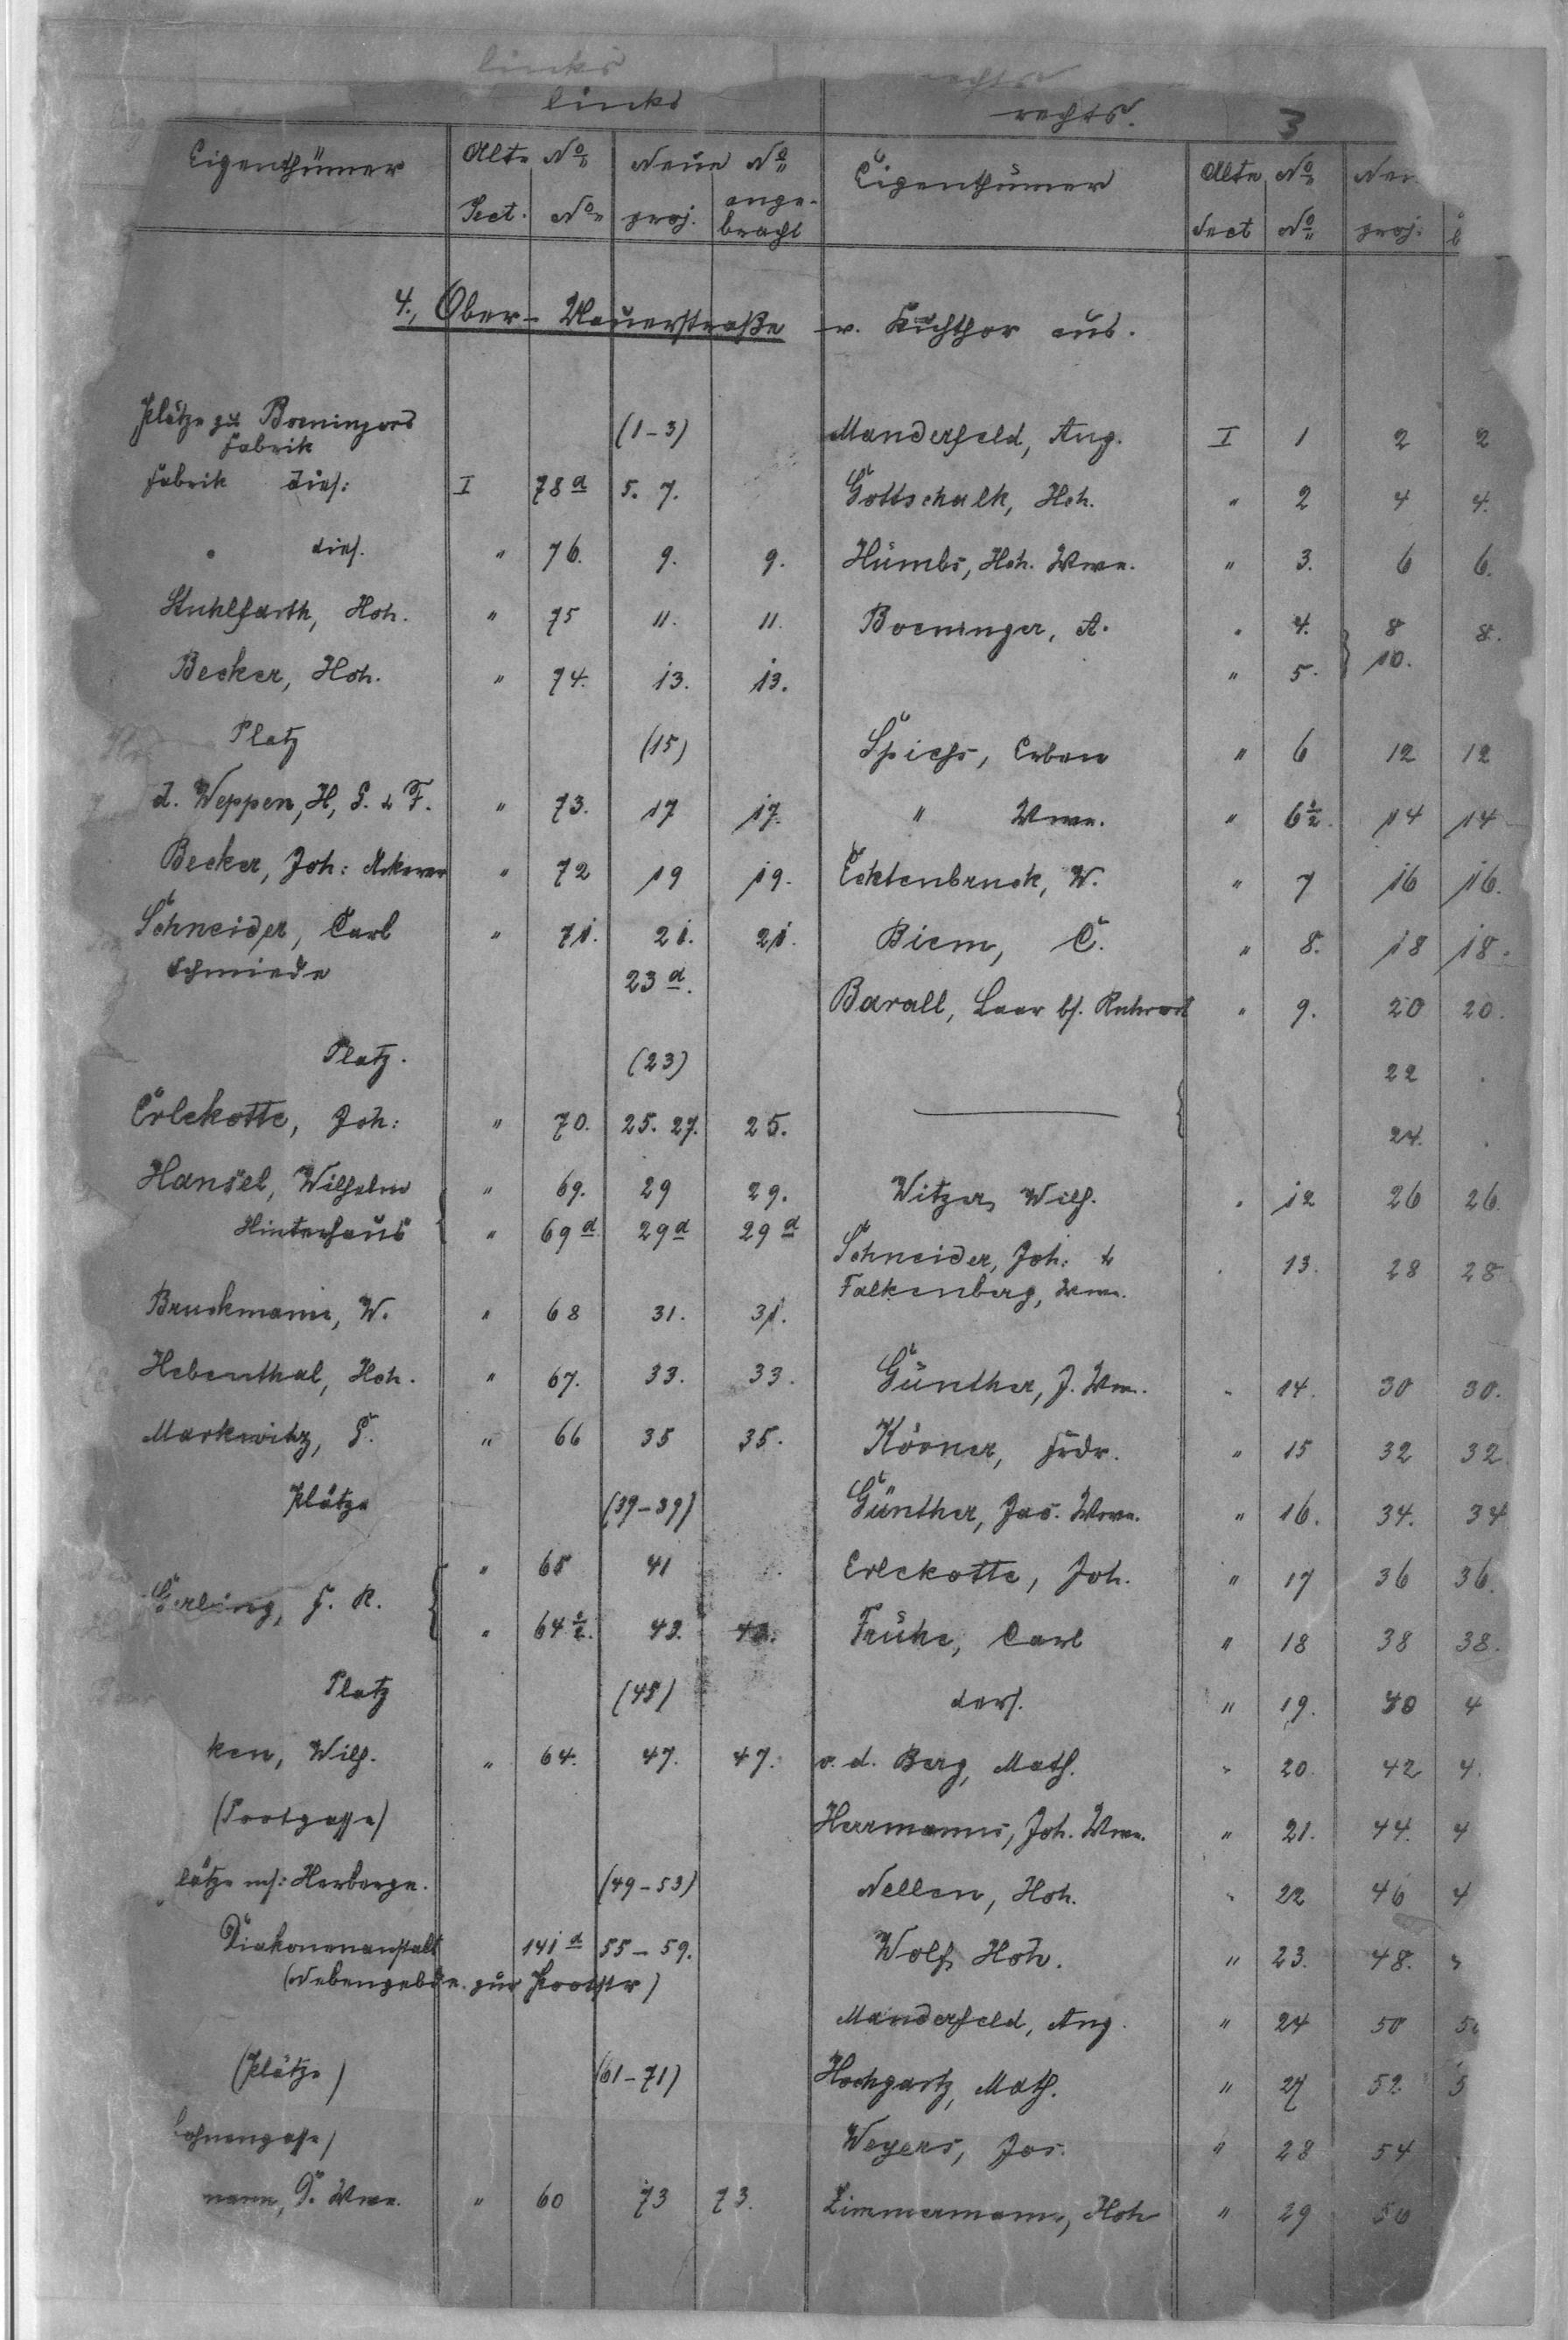 links rechts
links rechts. 3
Eigenthümer Alte No Neue No Eigenthümer Alte No Neu
Sect. No proj. ange-bracht Sect No proj.
4., Ober-Mauerstraße v. Kuhthor aus.
Plätze zu Boeningers Fabrik (1-3) Manderfeld, Aug. I 1 2 2
Fabrik dies: I 78a 5. 7. Gottschalk, Hch. " 2 4 4.
" dies. " 76. 9. 9. Hümbs, Hch. Wwe. " 3. 6 6.
Stuhlfarth, Hch. " 75 11. 11. Boeninger, A. " 4. 8 8.
Becker, Hch. " 74. 13. 13. " 5. 10.
Platz (15) Spichs, Erben " 6 12 12
d. Weppen, H, G. & F. " 73. 17 17. " Wwe. " 6½. 14 14
Becker, Joh: Ackerer " 72 19 19. Ecktenbruck, W. " 7 16 16.
Schneider, Carl " 71. 21. 21. Biem, C. " 8. 18 18.
Schmiede 23a.
Barall, Laar bs. Ruhrort " 9. 20 20.
Platz. (23) 22
Erlekotte, Joh: " 70. 25. 27. 25. 24.
Hansel, Wilhelm " 69. 29 29. Witzer, Wilh. " 12 26 26.
Hinterhaus " 69a 29a 29a
Schneider, Joh: & " 13. 28 28
Falkenberg, Wwe.
Bruckmann, W. " 68 31. 31.
Hebenthal, Hch. " 67. 33. 33. Günther, J. Wwe. " 14. 30 30.
Markwitz, G. " 66 35 35. Körner, Frdr. " 15 32 32
Plätze (37-39) Günther, Jac. Wwe. " 16. 34. 34
" 65 41 Erlekotte, Joh. " 17 36 36.
Gerling, J. K. " 64½. 43. 43. Frühe, Carl " 18 38 38.
Platz (45) ders. " 19. 40 4
ken, Wilh. " 64. 47. 47. v. d. Berg, Math. " 20. 42 4.
(Pootgasse) Herrmanns, Joh. Wwe. " 21. 44. 4
lätze Herberge. (49-53) Nellen, Hch. " 22 46 4
Diakonenanstalt 141a 55-59. Wolf, Hch. " 23. 48.
(Nebengebde. zur Pootstr)
Manderfeld, Aug. " 24 50 5
(Plätze) (61-71) Hochgartz, Math. " 27 52 5
ohnengasse) Weyers, Jos. " 28 54
mann, Wwe. " 60 73 73. Zimmermann, Hch " 29 56